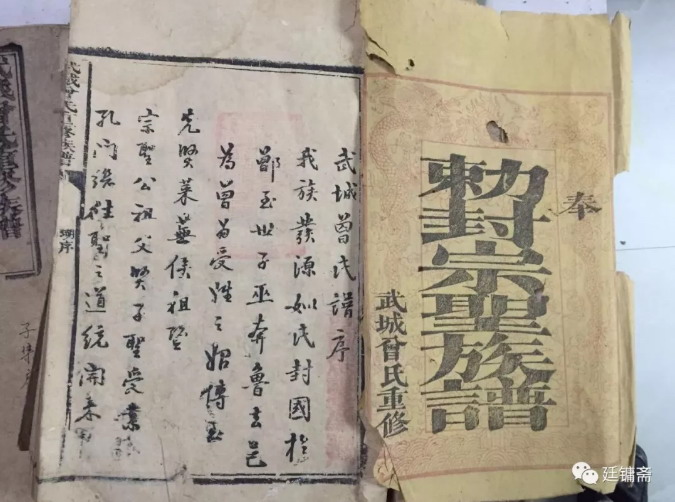 奉
勅封宗聖族譜
武城曾氏重修
武城曾氏譜序
我族發源姒氏封國於
鄫至世子巫奔魯去邑
為曾為受姓之始傳至
先賢萊蕪侯祖暨
宗聖公祖父賢子聖受業
孔門繼往聖之道統開來
武城曾氏重修族譜
序
武城曾氏重修族譜
廷镛斋